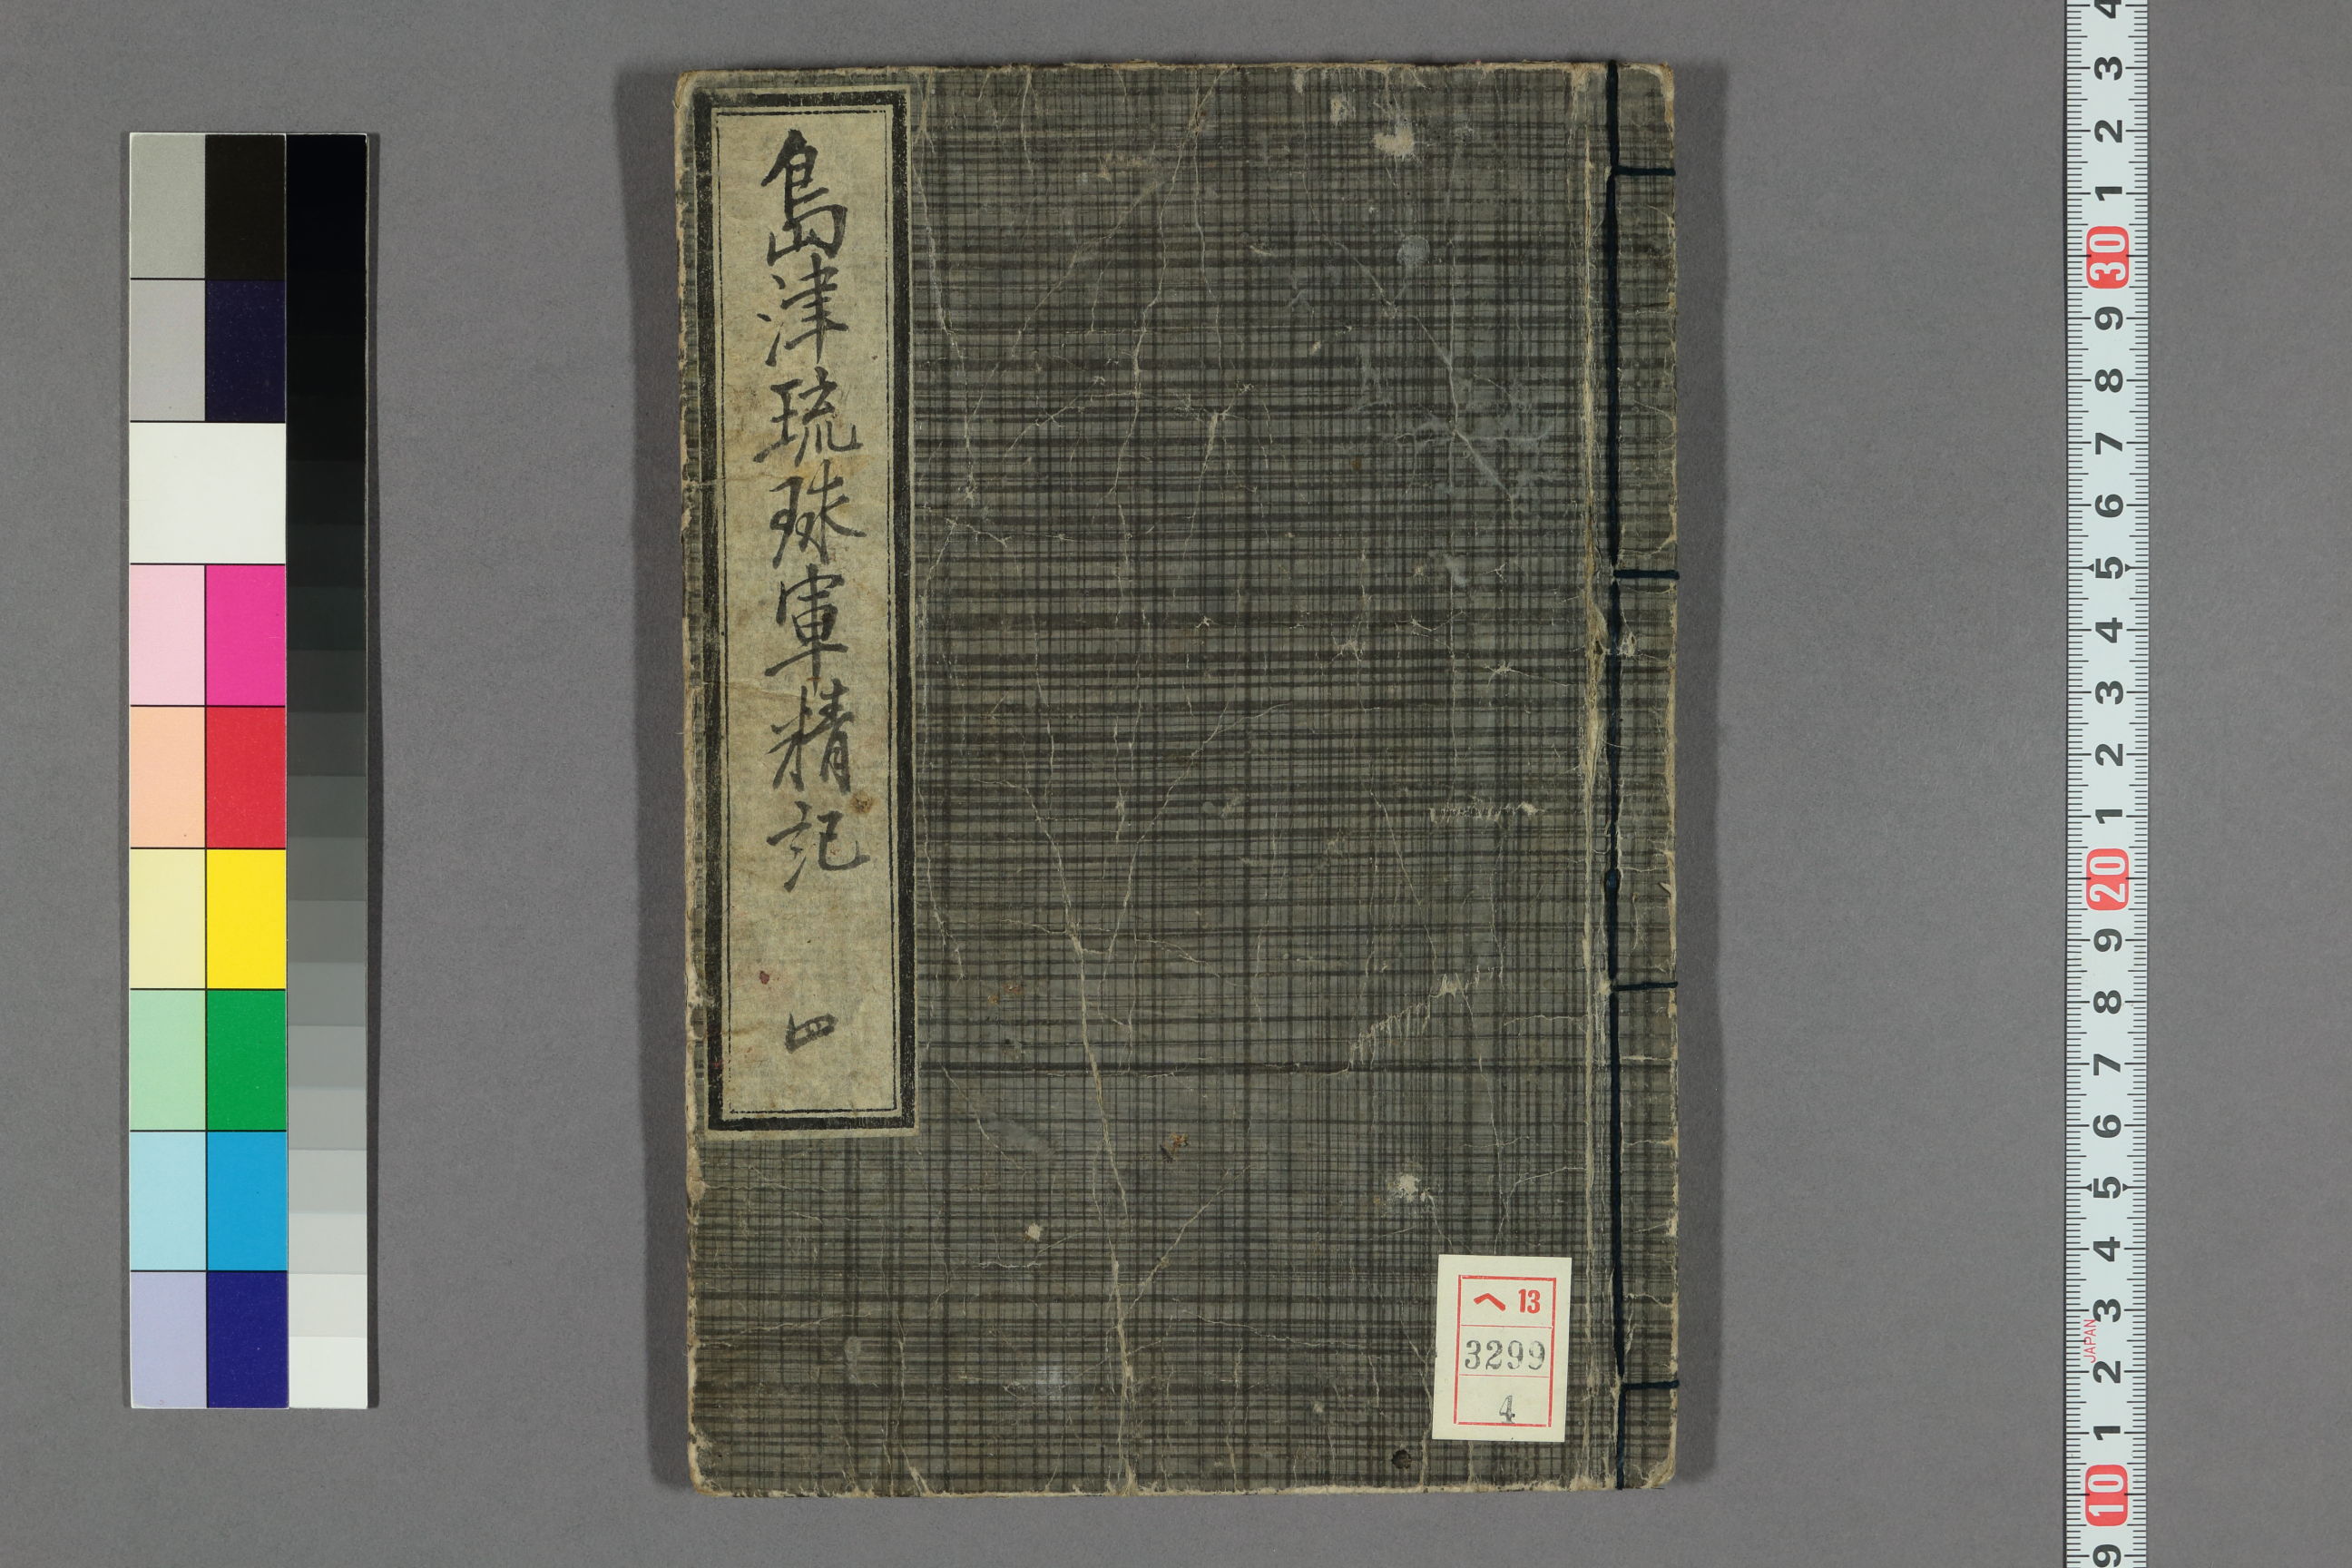 島津琉球軍精記
四
ヘ13
3299
4
4
3
2
1
30
9
8
7
6
5
4
3
2
1
20
9
8
7
6
5
4
3
JAPAN
2
1
10
9